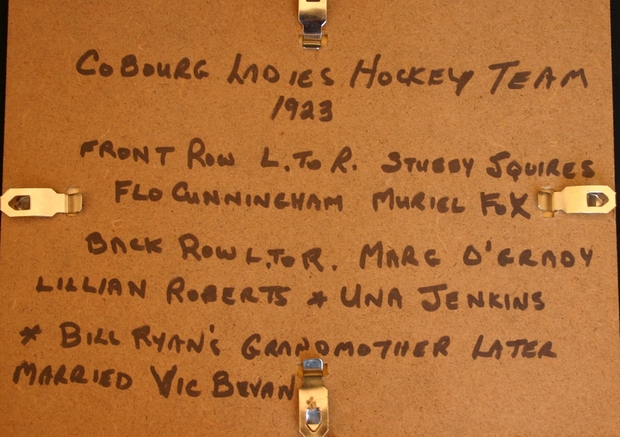 COBOURG LADIES HOCKEY TEAM
1923
FRONT ROW L. TO R. STUBBY SQUIRES
FLO CUNNINGHAM MURIEL FOX
BACK ROW L. TO R. MARG O'GRADY
LILLIAN ROBERTS * UNA JENKINS
* BILL RYAN'S GRANDMOTHER LATER
MARRIED VIC BEVAN